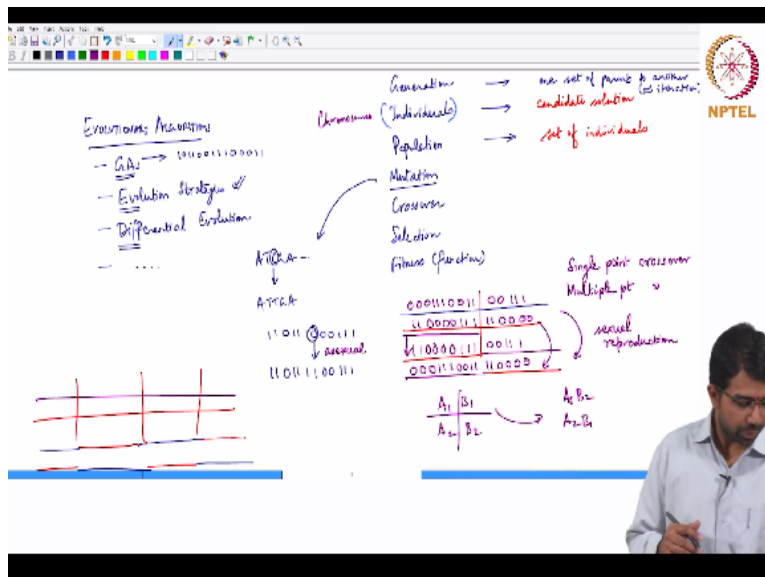 NPTEL
EVOLUTIONARY ALGORITHMS
- GAs → 10110011100011
- Evolution Strategies
- Differential Evolution
- .....
Generation → one set of parents to another
(≡ iteration)
Chromosomes (Individuals) → candidate solution
Population → set of individuals
Mutation
Crossover
Selection
Fitness (function)
ATCGA --
ATTGA
11011 0 00111
asexual
11011 1 00111
Single point crossover
Multiple pt "
000111 0011 00111
11 0000111 110000
11 0000111 00111
000111 0011 110000
sexual
reproduction
A1 B1
A2 B2
A1 B2
A2 B1